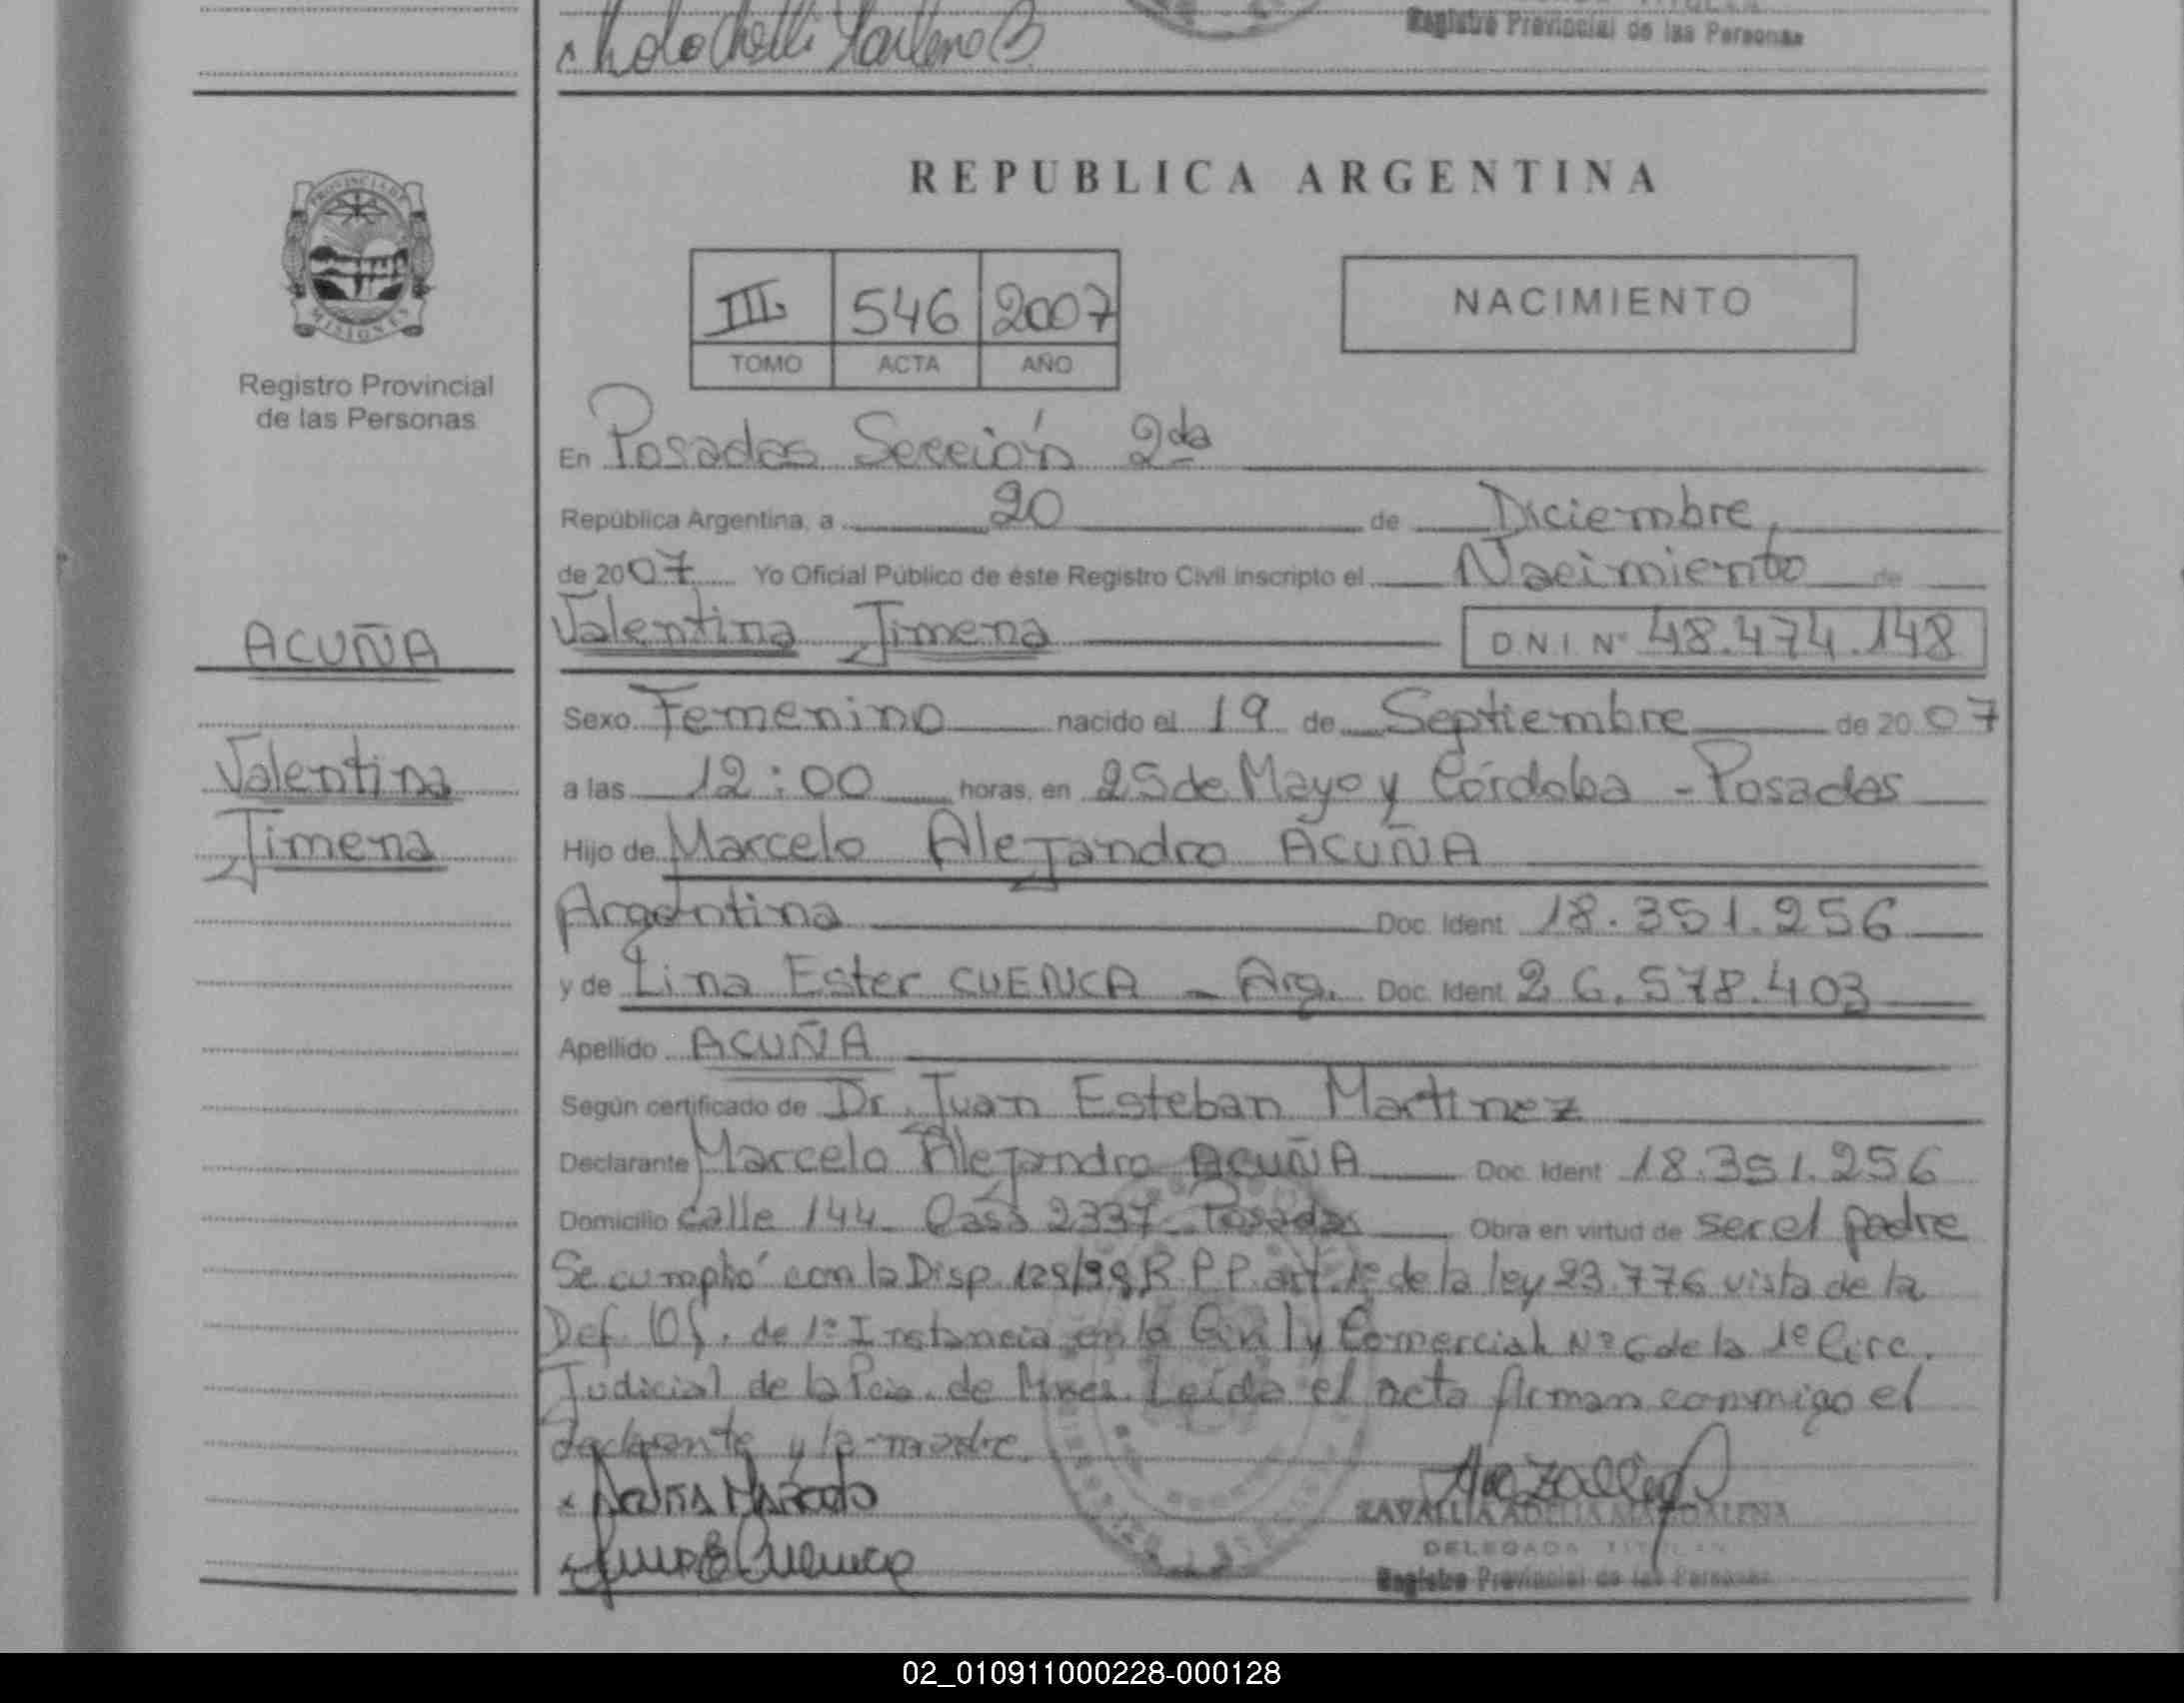 Registro Provincial de las Personas
REPUBLICA ARGENTINA
PROVINCIA DE
MISIONES
Registro Provincial
de las Personas
III 546 2007
TOMO ACTA AÑO
NACIMIENTO
En Posadas Sección 2da
República Argentina, a 20 de Diciembre,
de 2007 Yo Oficial Público de éste Registro Civil inscripto el Nacimiento de
ACUÑA
Valentina Jimena D N I Nº 48.474.148
Sexo Femenino nacido el 19 de Septiembre de 2007
Valentina
a las 12:00 horas, en 25 de Mayo y Córdoba - Posadas
Jimena
Hijo de Marcelo Alejandro ACUÑA
Argentina Doc. Ident. 18.351.256
y de Lina Ester CUENCA - Arg. Doc. Ident. 26.578.403
Apellido ACUÑA
Según certificado de Dr. Juan Esteban Martinez
Declarante Marcelo Alejandro ACUÑA Doc. Ident. 18.351.256
Domicilio Calle 144 Casa 2337 Posadas Obra en virtud de ser el padre
Se cumplió con la Disp. 129/99 R.P.P. art. 1º de la ley 23.776 vista de la
Def. Of. de 1º Instancia en lo Civil y Comercial Nº 6 de la 1º Circ.
Judicial de la Pcia. de Mnes. Leída el acta firman conmigo el
declarante y la madre.
x Acuña Marcelo
ZAVALLIA ADELIA MAGDALENA
DELEGADA TITULAR
Registro Provincial de las Personas
02_010911000228-000128